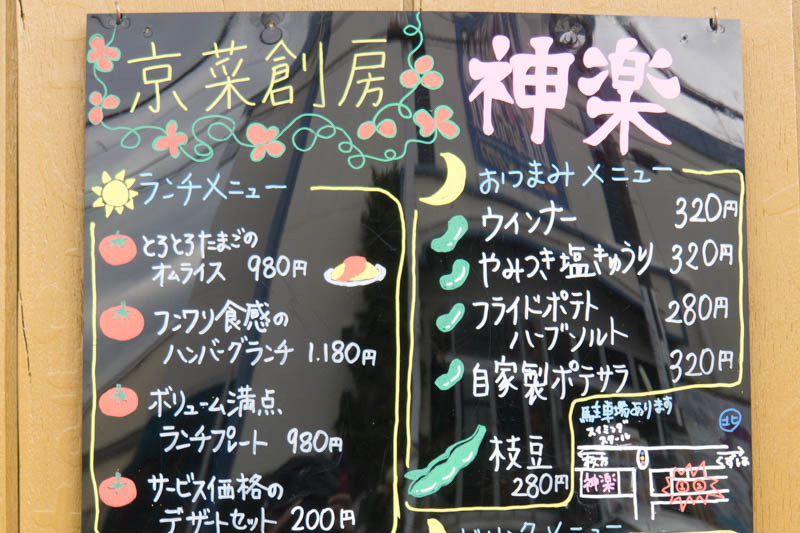 京菜創房
神楽
ランチメニュー
とろとろたまごの
オムライス 980円
フンワリ食感の
ハンバーグランチ 1.180円
ボリューム満点、
ランチプレート 980円
サービス価格の
デザートセット 200円
おつまみメニュー
ウインナー 320円
やみつき塩きゅうり 320円
フライドポテト
ハーブソルト 280円
自家製ポテサラ 320円
枝豆
280円
駐車場あります
北
スイミング
スクール
枚方
くずは
神楽
ドリンクメニュー